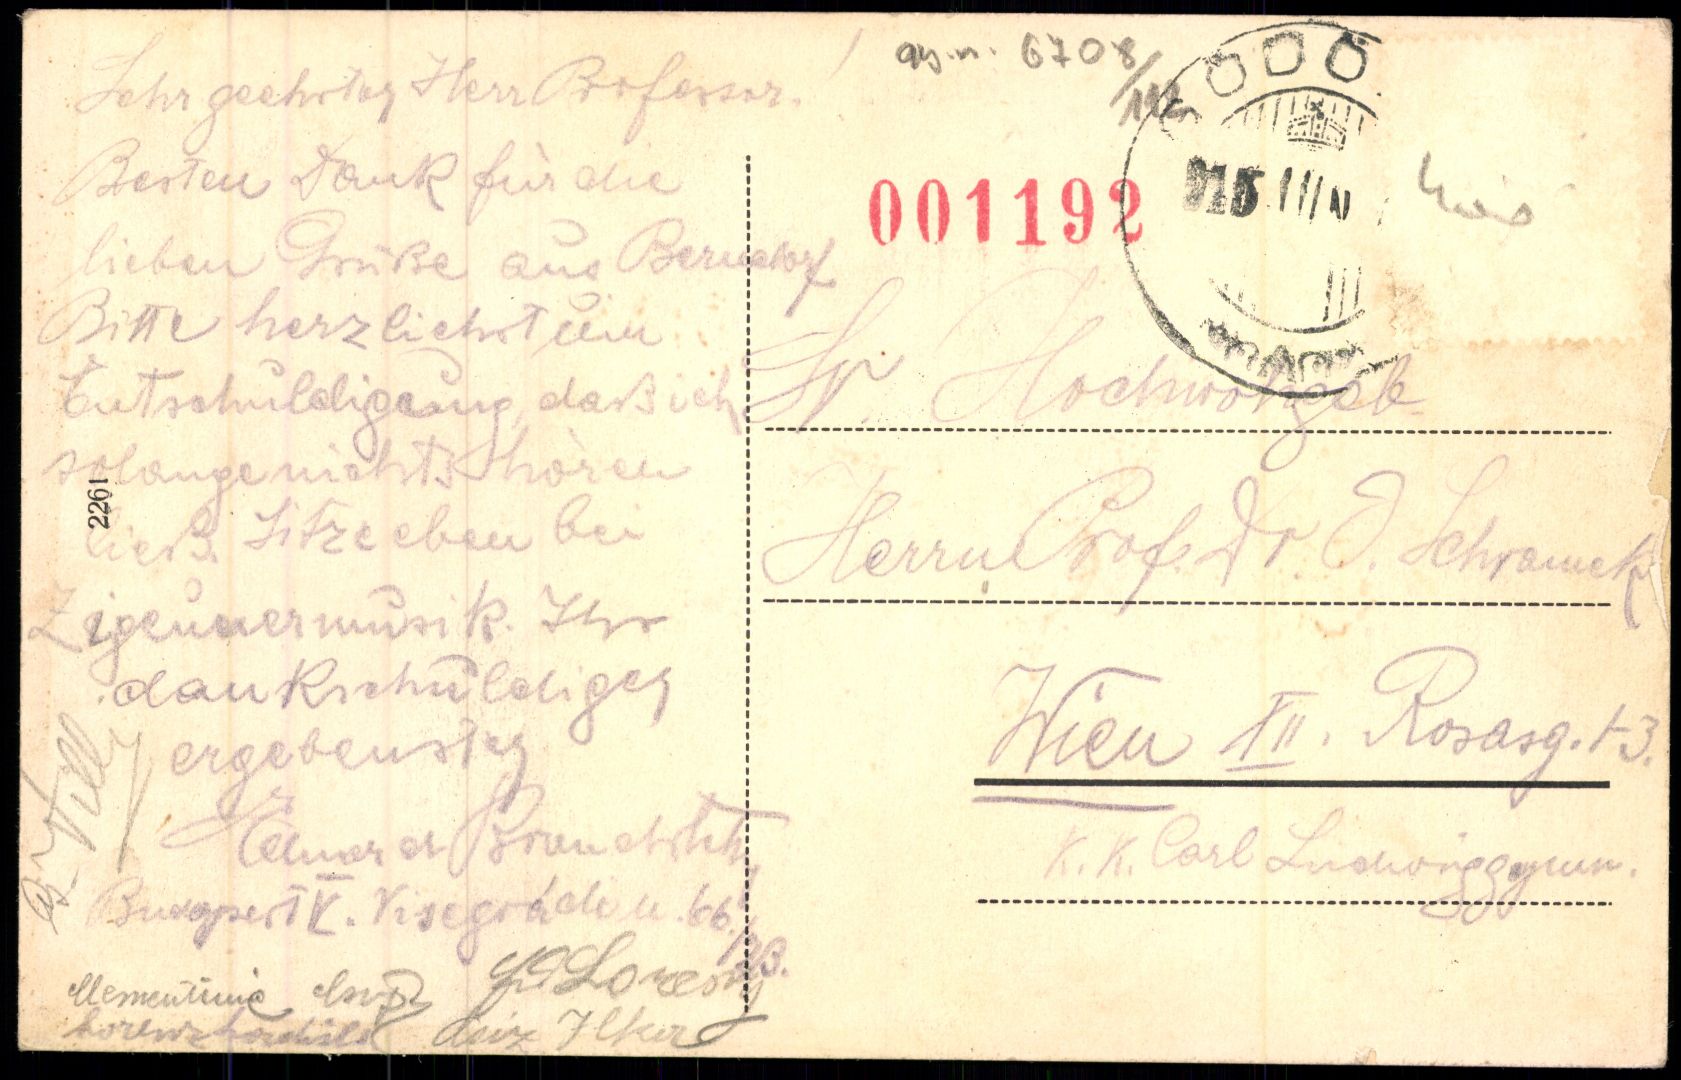 Sehr geehrter Herr Professor!
Besten Dank für die
lieben Grüße aus Berndorf
Bitte herzlichst um
Entschuldigung, daß ich
solange nichts hören
ließ. Sitze eben bei
Zigeunermusik. Ihr
dankschuldiger
ergebenster
Eduard
Budapest V. Visegrádi u. 66.
Willy
2261
6708
001192
ÖDÖ
915 III
Sr. Hochwohlgeb.
Herrn Prof. Dr J. Schramek
Wien XII. Rosasg. 13.
K. K. Carl Ludwiggymn.